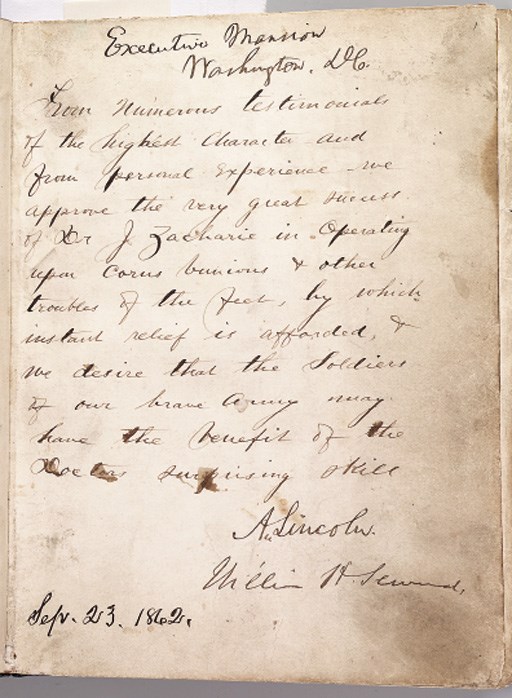 Executive Mansion
Washington, D.C.
From numerous testimonials
of the highest character and
from personal experience we
approve the very great success
of Dr J Zacharie in operating
upon corns bunions & other
troubles of the feet, by which
instant relief is afforded, &
we desire that the Soldiers
of our brave army may
have the benefit of the
Doctors surprising skill
A. Lincoln.
William H. Seward,
Sep. 23. 1862.